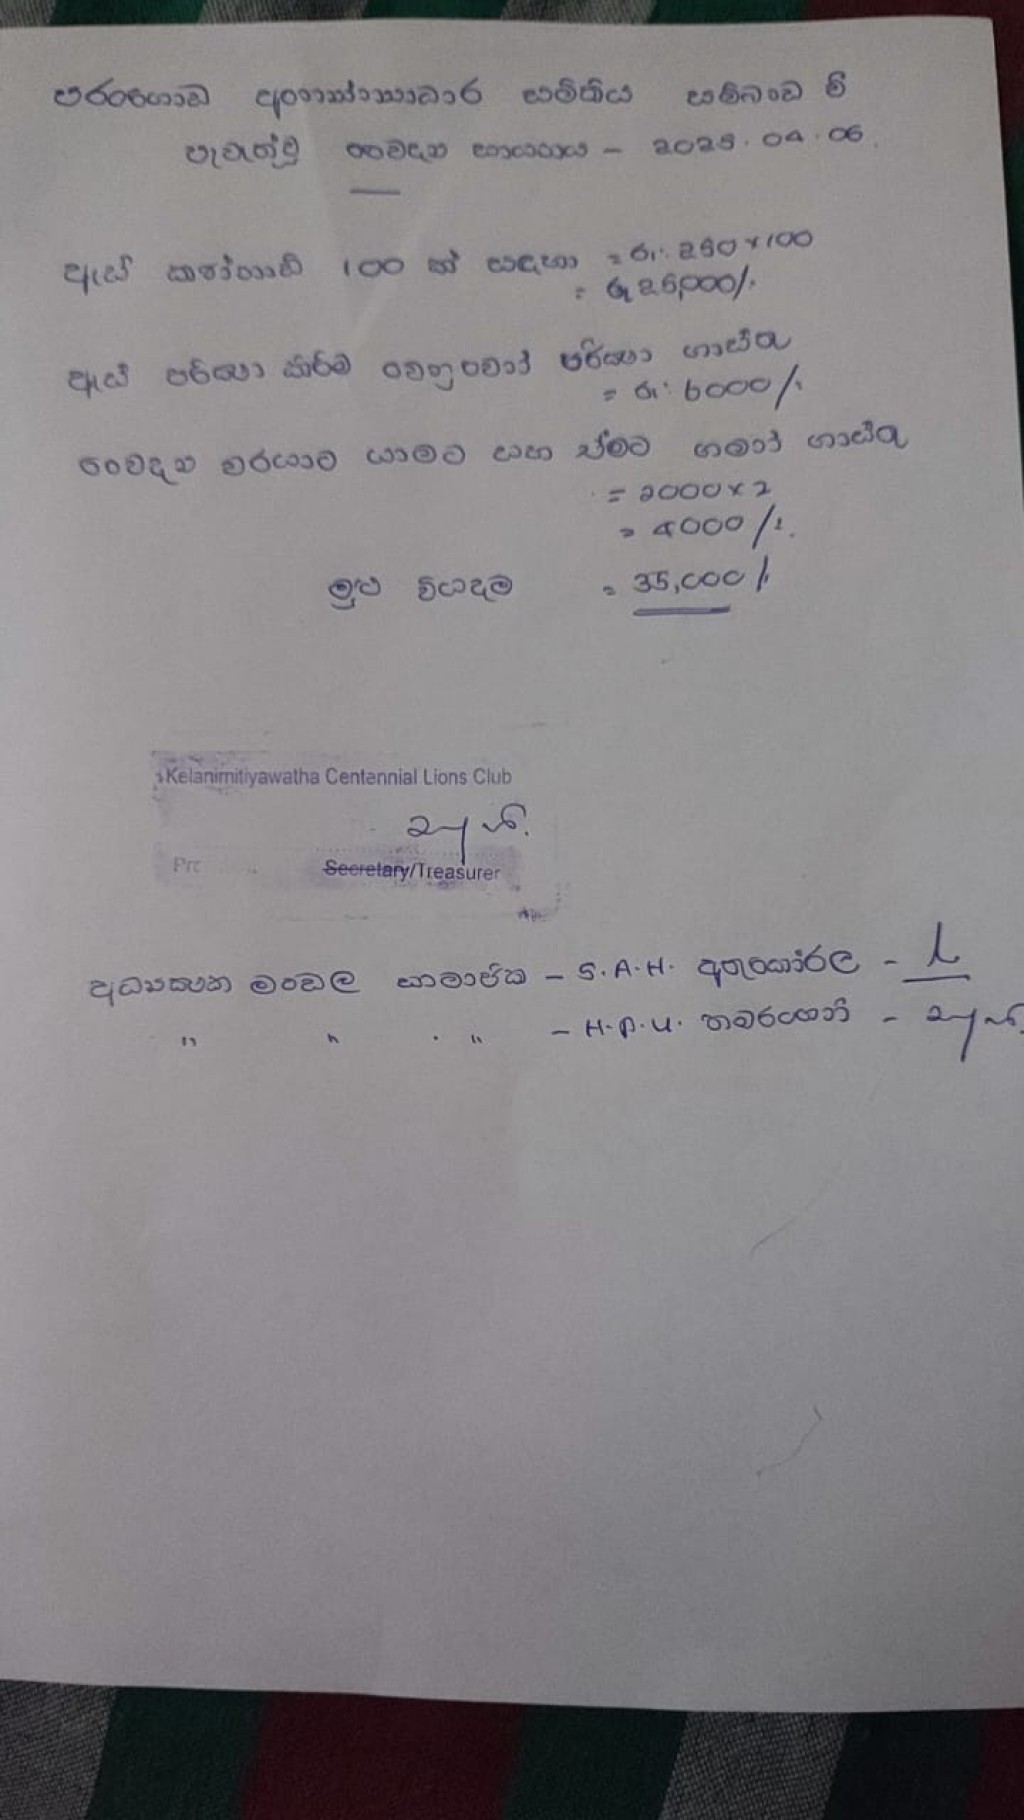 පරංගොඩ අන්‍යොන්‍යාධාර සමිතිය සම්බන්ධ වී
පැවැත්වූ වෛද්‍ය සායනය - 2025.04.06.
ඇස් කණ්නාඩි 100 ක් සඳහා = රු. 250×100
= රු 25,000/-
ඇස් පරීක්ෂා කිරීම වෙනුවෙන් පරීක්ෂා ගාස්තු
= රු. 6000/-
වෛද්‍ය වරයාට යාමට සහ ඒමට ගමන් ගාස්තු
= 2000×2
= 4000/-
මුළු වියදම = 35,000/-
Kelanimitiyawatha Centennial Lions Club
Secretary/Treasurer
අධ්‍යක්ෂක මංඩල සාමාජික - S.A.H. අතුකෝරල -
" " " - H.P.U.